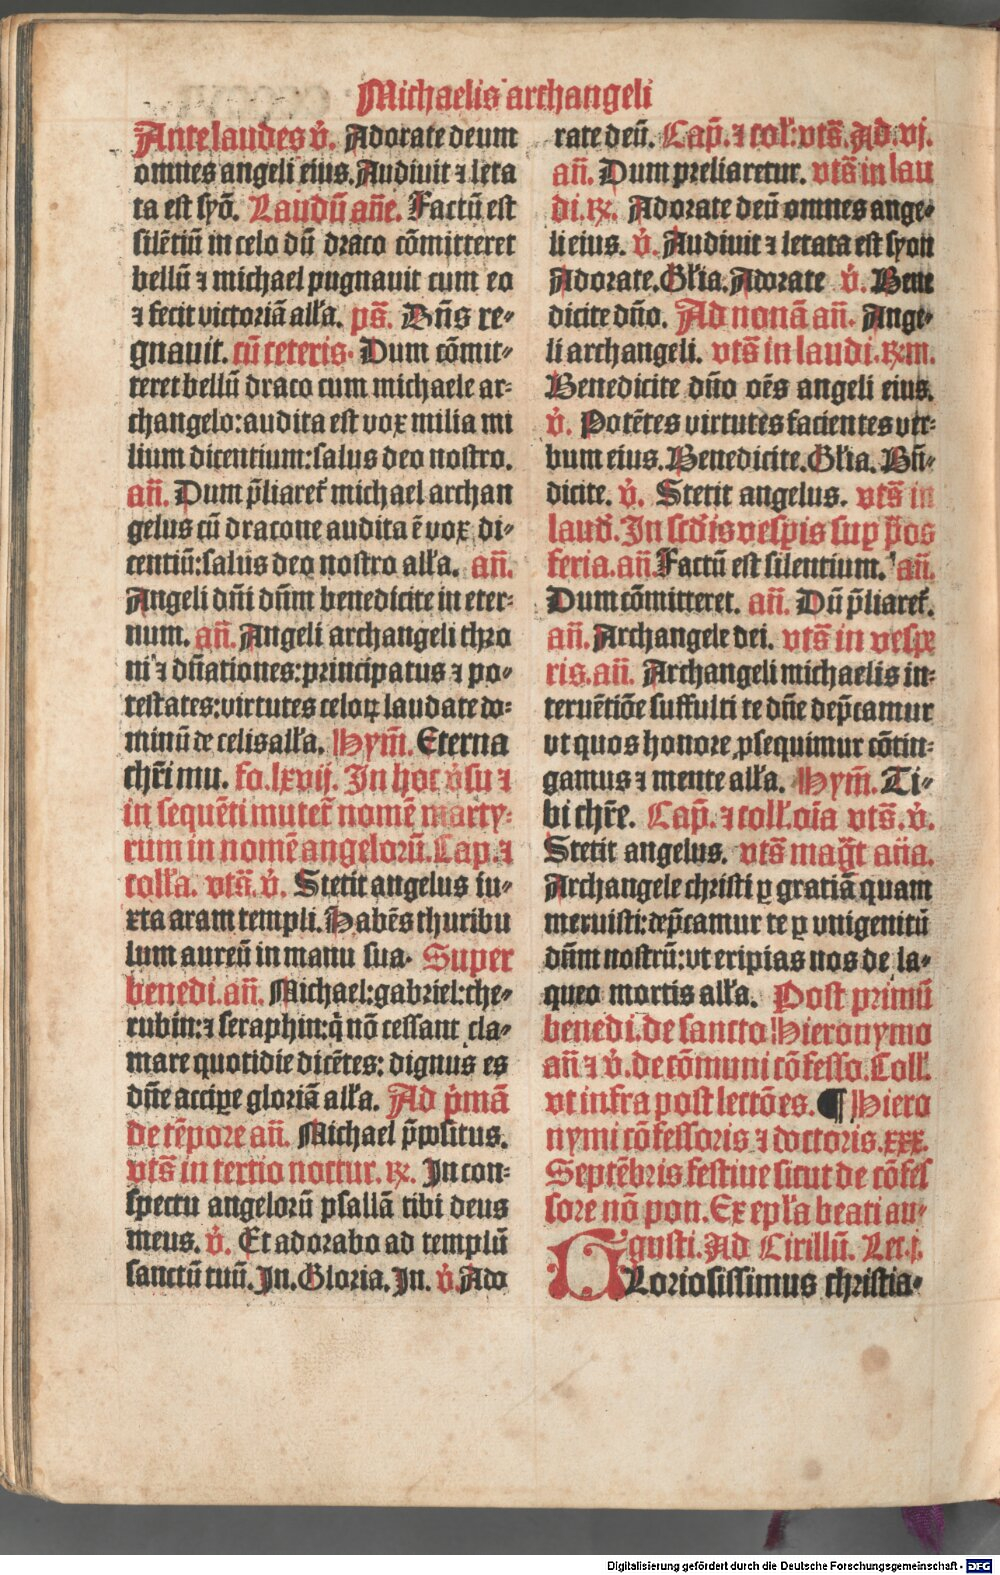 Michaelis archangeli
Ante laudes v̄. Adorate deum
omnes angeli eius. Audiuit ⁊ leta
ta est syō. Laudū añe. Factū est
silētiū in celo dū draco cōmitteret
bellū ⁊ michael pugnauit cum eo
⁊ fecit victoriā alła. ps̄. Dn̄s re⸗
gnauit. cū ceteris. Dum cōmit⸗
teret bellū draco cum michaele ar⸗
changelo: audita est vox milia mi
lium dicentium: salus deo nostro.
añ. Dum p̄liaret̄ michael archan
gelus cū dracone audita ē vox di⸗
centiū: salus deo nostro alła. añ.
Angeli dn̄i dn̄m benedicite in eter⸗
num. añ. Angeli archangeli thro
ni ⁊ dn̄ationes: principatus ⁊ po⸗
testates: virtutes celoꝝ laudate do⸗
minū de celis alła. Hym̄. Eterna
chr̄i mu. fo. lxvij. In hoc v̄su ⁊
in sequēti mutet̄ nomē marty⸗
rum in nomē angelorū. Cap. ⁊
colła. vts̄. v̄. Stetit angelus iu⸗
xta aram templi. Habēs thuribu
lum aureū in manu sua. Super
benedi. añ. Michael: gabriel: che⸗
rubin: ⁊ seraphin: q̄ nō cessant cla⸗
mare quotidie dicētes: dignus es
dn̄e accipe gloriā alła. Ad p̄mā
de tēpore añ. Michael p̄positus.
vts̄ in tertio noctur. ꝶ. In con⸗
spectu angelorū psallā tibi deus
meus. v̄. Et adorabo ad templū
sanctū tuū. In. Gloria. In. v̄. Ado
rate deū. Cap̄. ⁊ coł: vts̄. Ad. vj.
añ. Dum preliaretur. vts̄ in lau
di. ꝶ. Adorate deū omnes ange⸗
li eius. v̄. Audiuit ⁊ letata est syon
Adorate. Głia. Adorate v̄. Bene
dicite dn̄o. Ad nonā añ. Ange⸗
li archangeli. vts̄ in laudi. ꝶ. m.
Benedicite dn̄o oēs angeli eius.
v̄. Potētes virtutes facientes ver⸗
bum eius. Benedicite. Głia. Bn̄⸗
dicite. v̄. Stetit angelus. vts̄ in
laud̄. In scd̄is vesp̱is sup p̄os
feria. añ. Factū est silentium. añ.
Dum cōmitteret. añ. Dū p̄liaret̄.
añ. Archangele dei. vts̄ in vespe
ris. añ. Archangeli michaelis in⸗
teruētiōe suffulti te dn̄e dep̄camur
vt quos honore ꝓsequimur cōtin⸗
gamus ⁊ mente alła. Hym̄. Ti⸗
bi chr̄e. Cap̄. ⁊ coll. oīa vts̄. v̄.
Stetit angelus. vts̄ mag̅t aña.
Archangele christi ꝑ gratiā quam
meruisti: dep̄camur te ꝑ vnigenitū
dn̄m nostrū: vt eripias nos de la⸗
queo mortis alła. Post primū
benedi. de sancto Hieronymo
añ ⁊ v̄. de cōmuni cōfesso. Coll.
vt infra post lectōes. ¶ Hiero
nymi cōfessoris ⁊ doctoris. xxx.
Septēbris festiue sicut de cōfes
sore nō pon. Ex epła beati au⸗
gusti. Ad Cirillū. Lec. j.
GLoriosissimus christia⸗
Digitalisierung gefördert durch die Deutsche Forschungsgemeinschaft - DFG